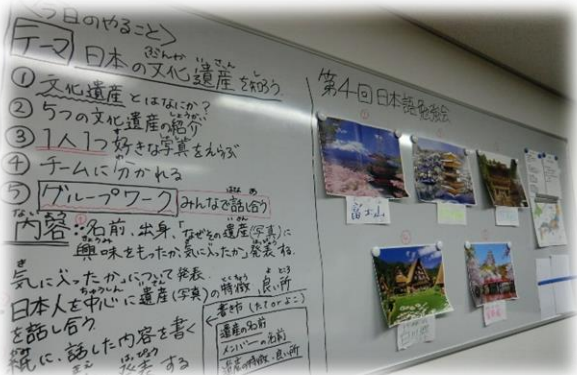 今日のやること>
テーマ 日本の文化遺産を知ろう
① 文化遺産とはなにか?
② 5つの文化遺産の紹介
③ 1人1つ好きな写真をえらぶ
④ チームに分かれる
⑤ グループワーク みんなで話し合う
内容:名前、出身、「なぜその遺産(写真)に
興味をもったか、気に入ったか」発表する。
気に入ったか、について発表
日本人を中心に遺産(写真)の特徴、良い所
を話し合う
紙に、話した内容を書く
発表する
←書き方(たてがよこ)
遺産の名前
メンバーの名前
遺産の特徴、良い所
第4回日本語勉強会
富士山
白川郷